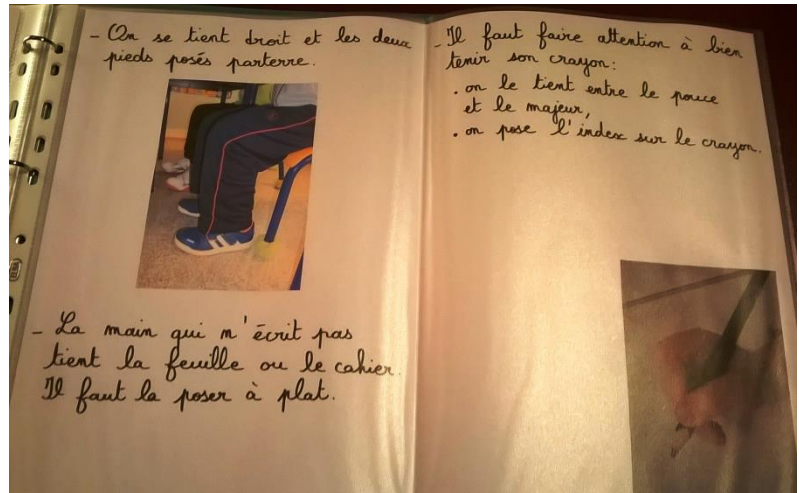 - On se tient droit et les deux
pieds posés parterre.
- La main qui n'écrit pas
tient la feuille ou le cahier.
Il faut la poser à plat.
- Il faut faire attention à bien
tenir son crayon:
. on le tient entre le pouce
et le majeur,
. on pose l'index sur le crayon.